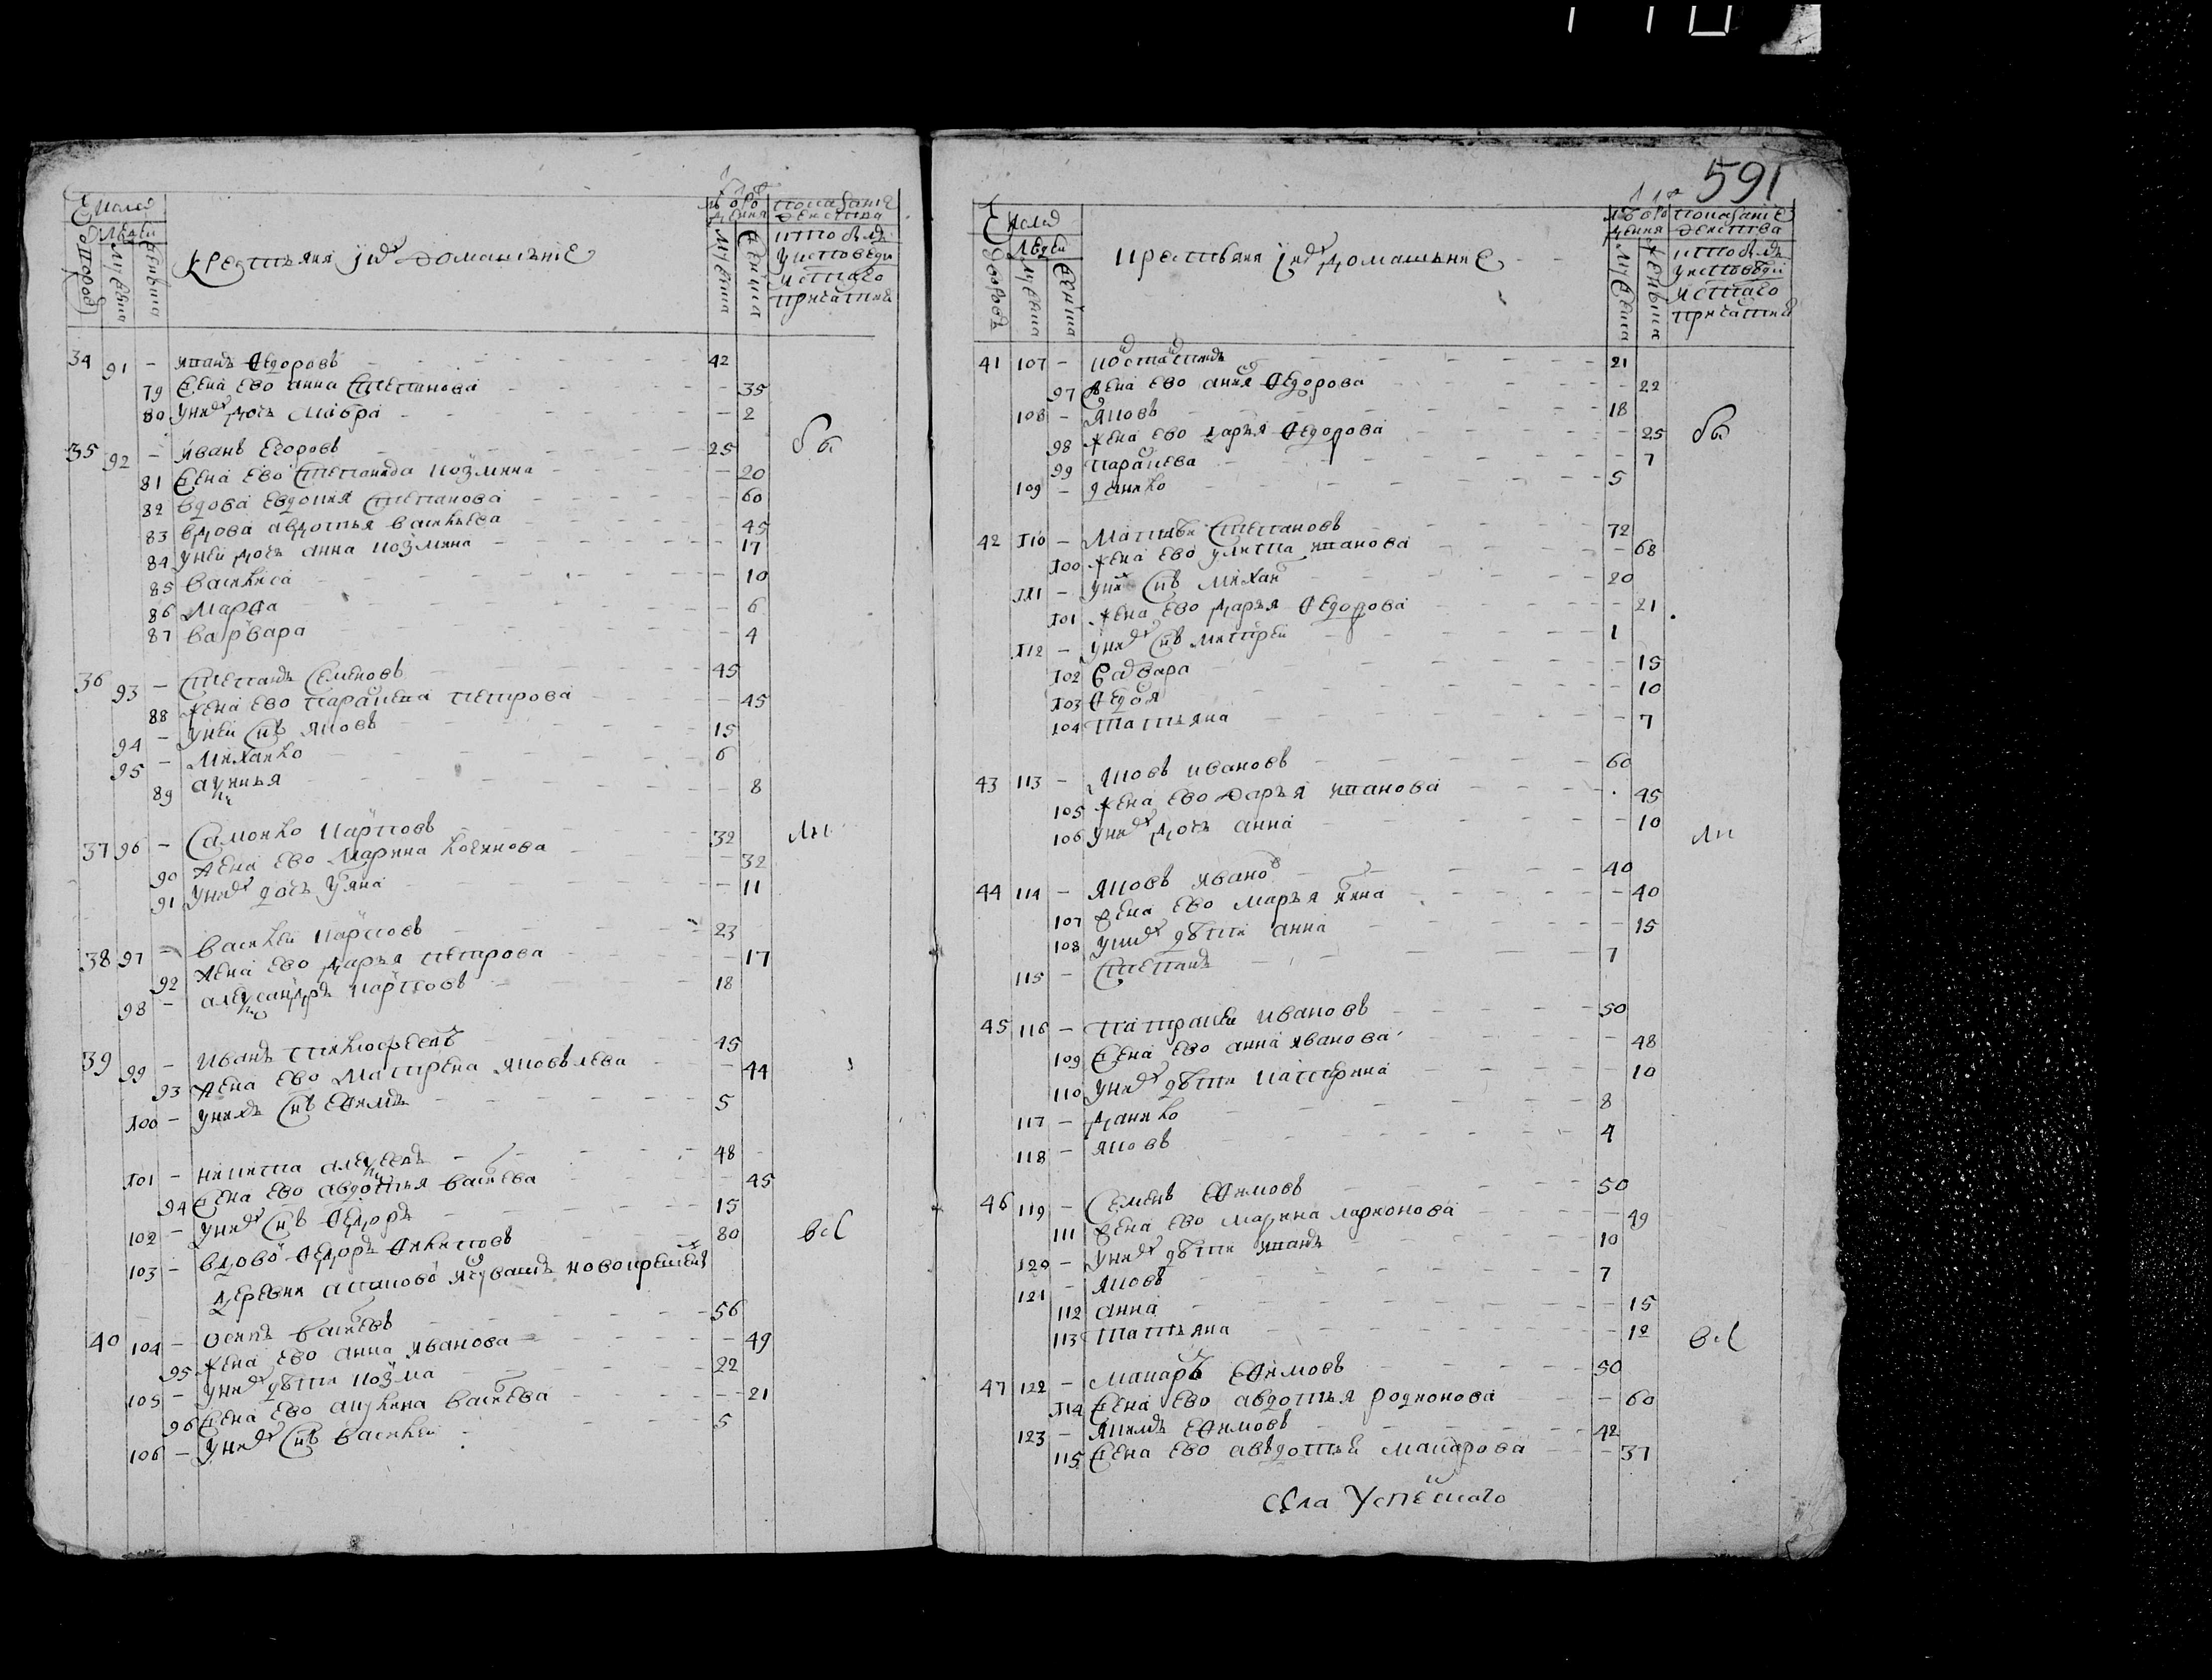 591
Число
людеи
дворовъ
мужеска
женска
Крестьяня и ихъ домашние
лѣта от рождения
мужеска
женска
показание
действа
кто былъ
у исповеди
и с͠таго
причастия
34 91 - Иванъ Федоровъ 42
79 Жена ево Анна Степанова 35
80 У нихъ дочь Мавра 2
35 92 - Иванъ Егоровъ 25
бы
81 Жена ево Степанида Козмина 20
82 Вдова Евдокия Степанова 60
83 Вдова Авдотья Васильева 45
84 У неи дочь Анна Козмина 17
85 Василиса 10
86 Марфа 6
87 Варвара 4
36 93 - Степанъ Семеновъ 45
88 Жена ево Параскева Петрова 45
94 - У неи сн͠ъ Яковъ 15
95 - Михайко 6
89 8
37 96 - Карповъ 32
ли
90 Жена ево Марина 32
91 У нихъ дочь Уляна 11
38 97 - Василеи Карповъ 23
92 Жена ево Дарья Петрова 17
98 - Александръ Карповъ 18
39 99 - Иванъ 45
93 Жена ево Матрена Яковлева 44
100 - У нихъ сн͠ъ Ефимъ 5
101 - Никита Алексеевъ 48
94 Жена ево Авдотья Васильева 45
102 - У нихъ сн͠ъ Федоръ 15
103 - Вдовой Федоръ Филиповъ 80
всѣ
Деревни новокрещены
40 104 - Осипъ Васильевъ 56
95 Жена ево Анна Иванова 49
105 - У нихъ дѣти Козма 22
96 Жена ево Акулина Васильева 21
106 - У нихъ сн͠ъ Василеи 5
Число
людеи
дворовъ
мужеска
женска
Крестьяня и ихъ домашние
лѣта от рождения
мужеска
женска
показание
действа
кто былъ
у исповеди
и с͠таго
причастия
41 107 - Костантинъ 21
97 Жена ево Анна Федорова 22
108 - Яковъ 18
98 Жена ево Дарья Федорова 25
бы
99 Параскева 7
109 - 5
42 110 - Матвѣи Степановъ 72
100 Жена ево Улита Иванова 68
111 - У них сн͠ъ Михаи 20
101 Жена ево Дарья Федорова 21
112 - У нихъ сн͠ъ Митреи 1
102 Варвара 15
103 10
104 Татьяна 7
43 113 - Яковъ Ивановъ 60
105 Жена ево Дарья Иванова 45
106 У нихъ дочь Анна 10
ли
44 114 - Яковъ Иванов 40
107 Жена ево Марья 40
108 У нихъ дѣти Анна 15
115 - Степанъ 7
45 116 - Патракеи Ивановъ 50
109 Жена ево Анна Иванова 48
110 У нихъ дѣти Катирина 10
117 - Данико 8
118 - Яковъ 4
46 119 - Семенъ Ефимовъ 50
111 Жена ево Марина Ларионова 49
120 - У нихъ дѣти Иванъ 10
121 - Яковъ 7
112 Анна 15
113 Татьяна 12
всѣ
47 122 - Макаръ Ефимовъ 50
114 Жена ево Авдотья Родионова 60
123 - Якимъ Ефимовъ 42
115 Жена ево Авдотья Макарова 37
села Успенскаго